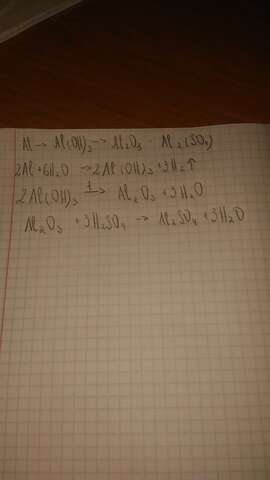 Al → Al(OH)3 → Al2O3 - Al2(SO4)
2Al + 6H2O → 2Al(OH)3 + 3H2↑
2Al(OH)3 t→ Al2O3 + 3H2O
Al2O3 + 3H2SO4 → Al2SO4 + 3H2O